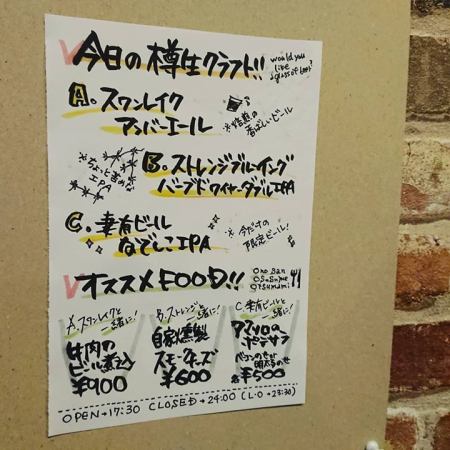 今日の樽生クラフト!!
would you like a glass of beer?
A. スワンレイク
アンバーエール
※焙煎の香ばしいビール
※ちょっと苦めなIPA
B. ストレンジブルーイング
バーブドワイヤーダブルIPA
C. 幸有ビール
なでしこIPA
※今だけの限定ビール!
オススメFOOD!!
Ono Ban
Osusume
Otsumami
A.スワンレイクと一緒に!
牛肉の
ビール煮込
¥900
B.ストレンジと一緒に!
自家燻製
スモークチーズ
¥600
C.幸有ビールと一緒に!
アンチョビの
ポテサラ
ベーコンのせ
明太のせ
各¥500
OPEN→17:30 CLOSED→24:00 (L・O→23:30)